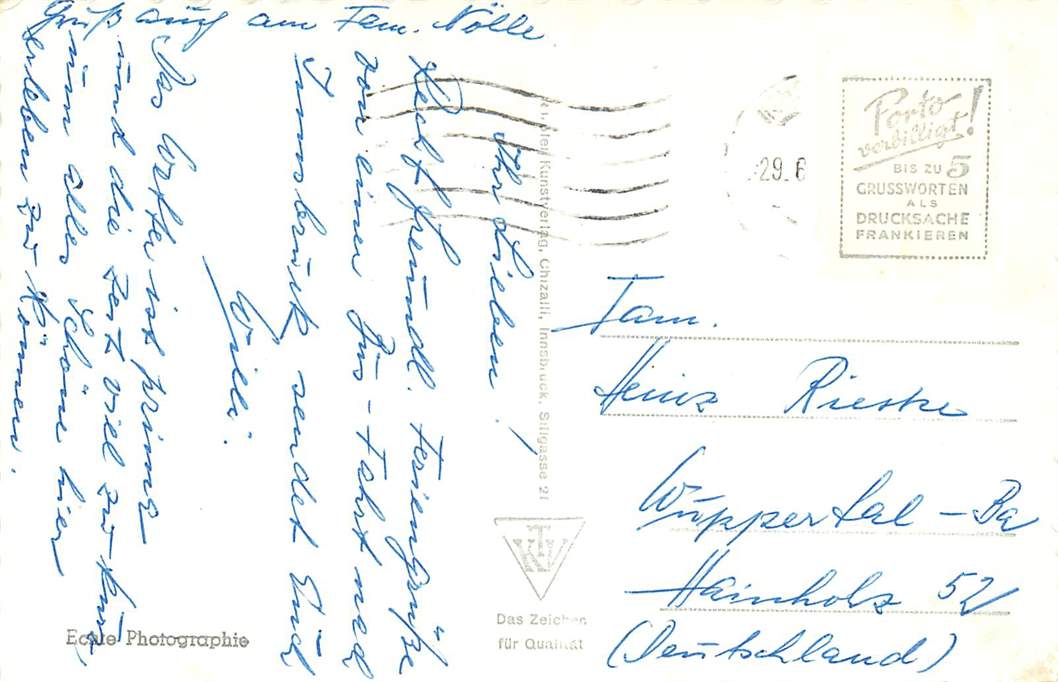 Gruß auch am Fam. Nölle
Ihr Lieben!
Recht freundl. Feriengrüße
von einer Bus-Fahrt nach
Innsbruck sendet Euch
Willi.
Das Wetter ist prima
und die Zeit viel zu kurz
um alles Schöne hier
erleben zu können.
Echte Photographie
Kunstverlag, Chizalli, Innsbruck, Sillgasse 21
TKV
Das Zeichen
für Qualität
29. 6
Porto
verbilligt!
BIS ZU 5
GRUSSWORTEN
ALS
DRUCKSACHE
FRANKIEREN
Fam.
Heinz Rieske
Wuppertal - Ba
Hainholz 52
(Deutschland)